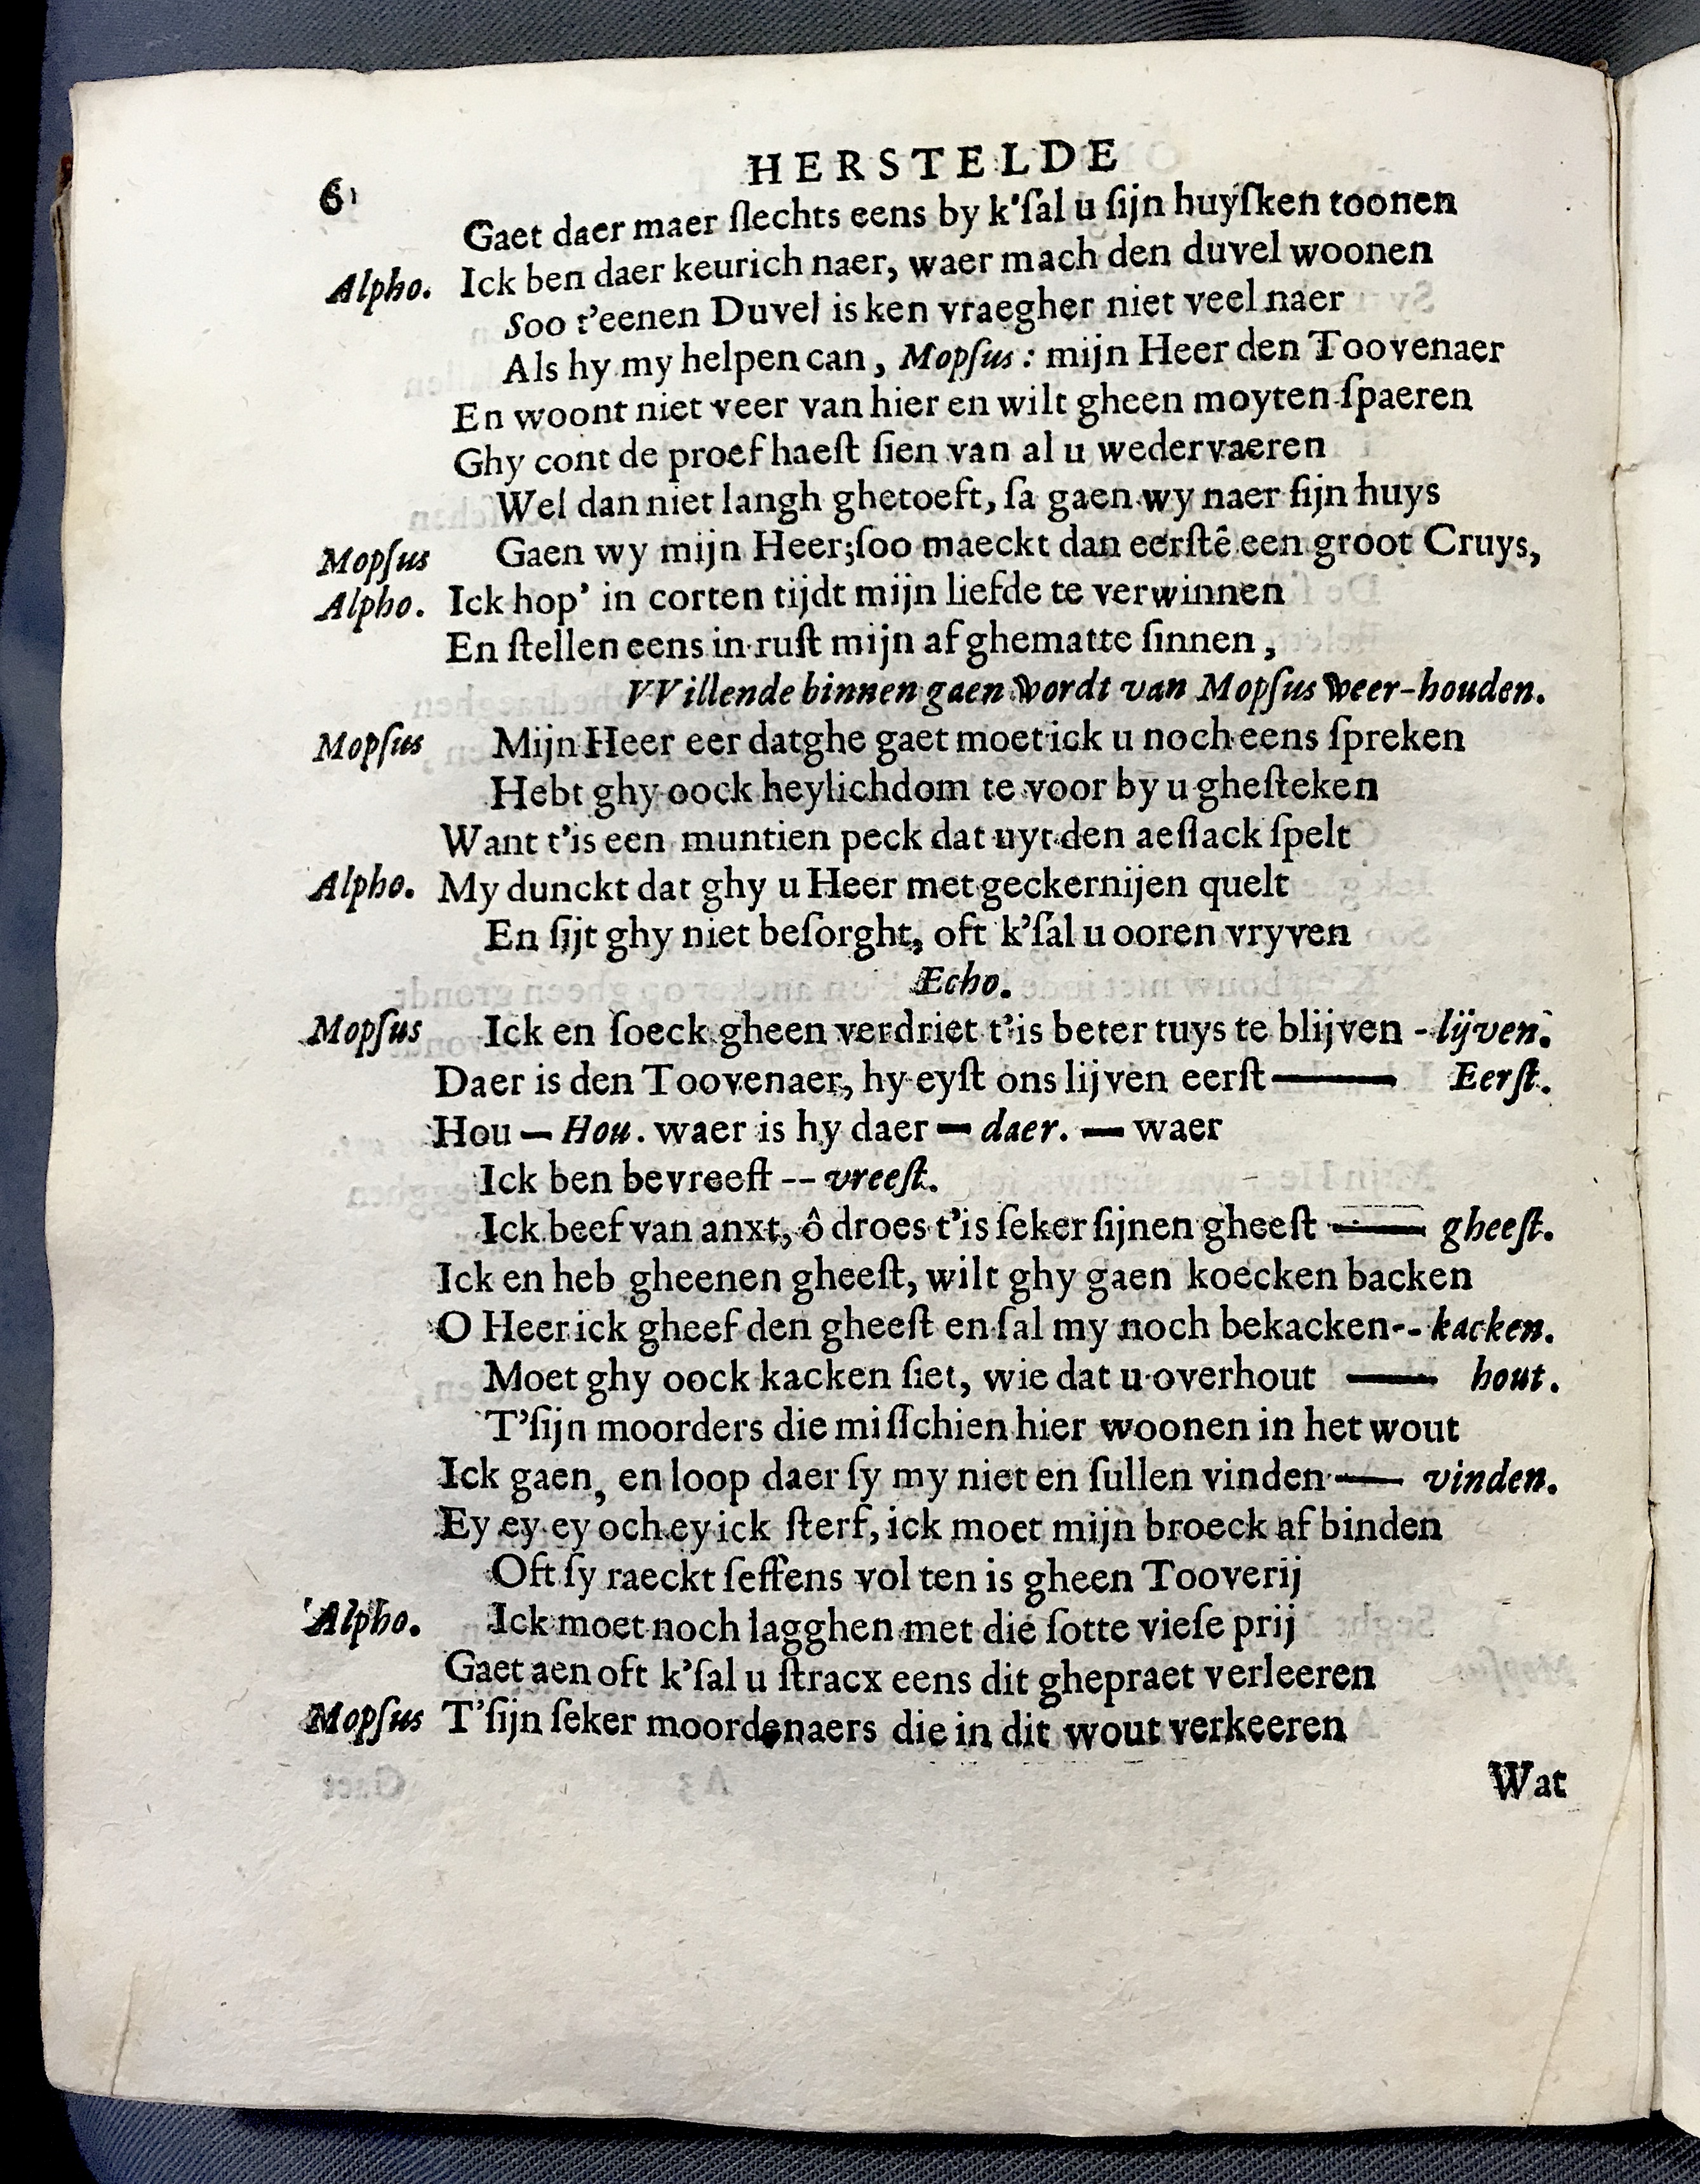 6 HERSTELDE
Gaet daer maer ſlechts eens by k'ſal u ſijn huyſken toonen
Alpho. Ick ben daer keurich naer, waer mach den duvel woonen
Soo t'eenen Duvel is ken vraegher niet veel naer
Als hy my helpen can, Mopſus: mijn Heer den Toovenaer
En woont niet veer van hier en wilt gheen moyten ſpaeren
Ghy cont de proef haeſt ſien van al u wedervaeren
Wel dan niet langh ghetoeft, ſa gaen wy naer ſijn huys
Mopſus Gaen wy mijn Heer;ſoo maeckt dan eerſtê een groot Cruys,
Alpho. Ick hop' in corten tijdt mijn liefde te verwinnen
En ſtellen eens in ruſt mijn af ghematte ſinnen,
VVillende binnen gaen wordt van Mopſus weer-houden.
Mopſus Mijn Heer eer datghe gaet moet ick u noch eens ſpreken
Hebt ghy oock heylichdom te voor by u gheſteken
Want t'is een muntien peck dat uyt den aeſlack ſpelt
Alpho. My dunckt dat ghy u Heer met geckernijen quelt
En ſijt ghy niet beſorght, oft k'ſal u ooren vryven
Echo.
Mopſus Ick en ſoeck gheen verdriet t'is beter tuys te blijven - lijven.
Daer is den Toovenaer, hy eyſt ons lijven eerſt — Eerſt.
Hou — Hou. waer is hy daer — daer. — waer
Ick ben bevreeſt -- vreeſt.
Ick beef van anxt, ô droes t'is ſeker ſijnen gheeſt — gheeſt.
Ick en heb gheenen gheeſt, wilt ghy gaen koecken backen
O Heer ick gheef den gheeſt en ſal my noch bekacken-- kacken.
Moet ghy oock kacken ſiet, wie dat u overhout — hout.
T'ſijn moorders die miſſchien hier woonen in het wout
Ick gaen, en loop daer ſy my niet en ſullen vinden — vinden.
Ey ey ey och ey ick ſterf, ick moet mijn broeck af binden
Oft ſy raeckt ſeffens vol ten is gheen Tooverij
Alpho. Ick moet noch lagghen met die ſotte vieſe prij
Gaet aen oft k'ſal u ſtracx eens dit ghepraet verleeren
Mopſus T'ſijn ſeker moordenaers die in dit wout verkeeren
Wat